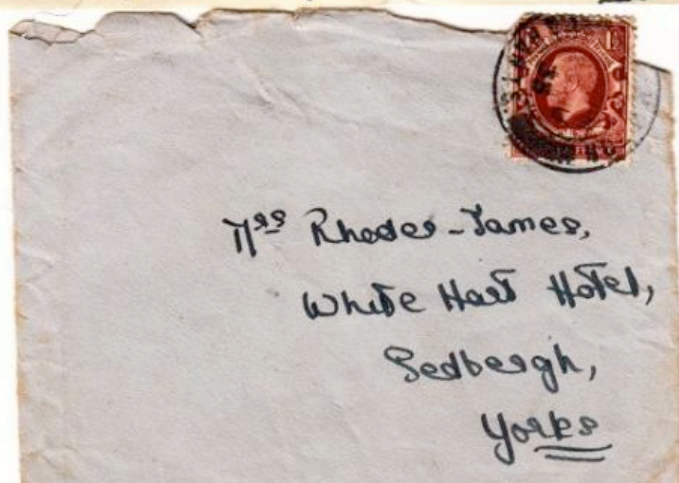 Mrs Rhodes-James,
White Hart Hotel,
Sedbergh,
Yorks